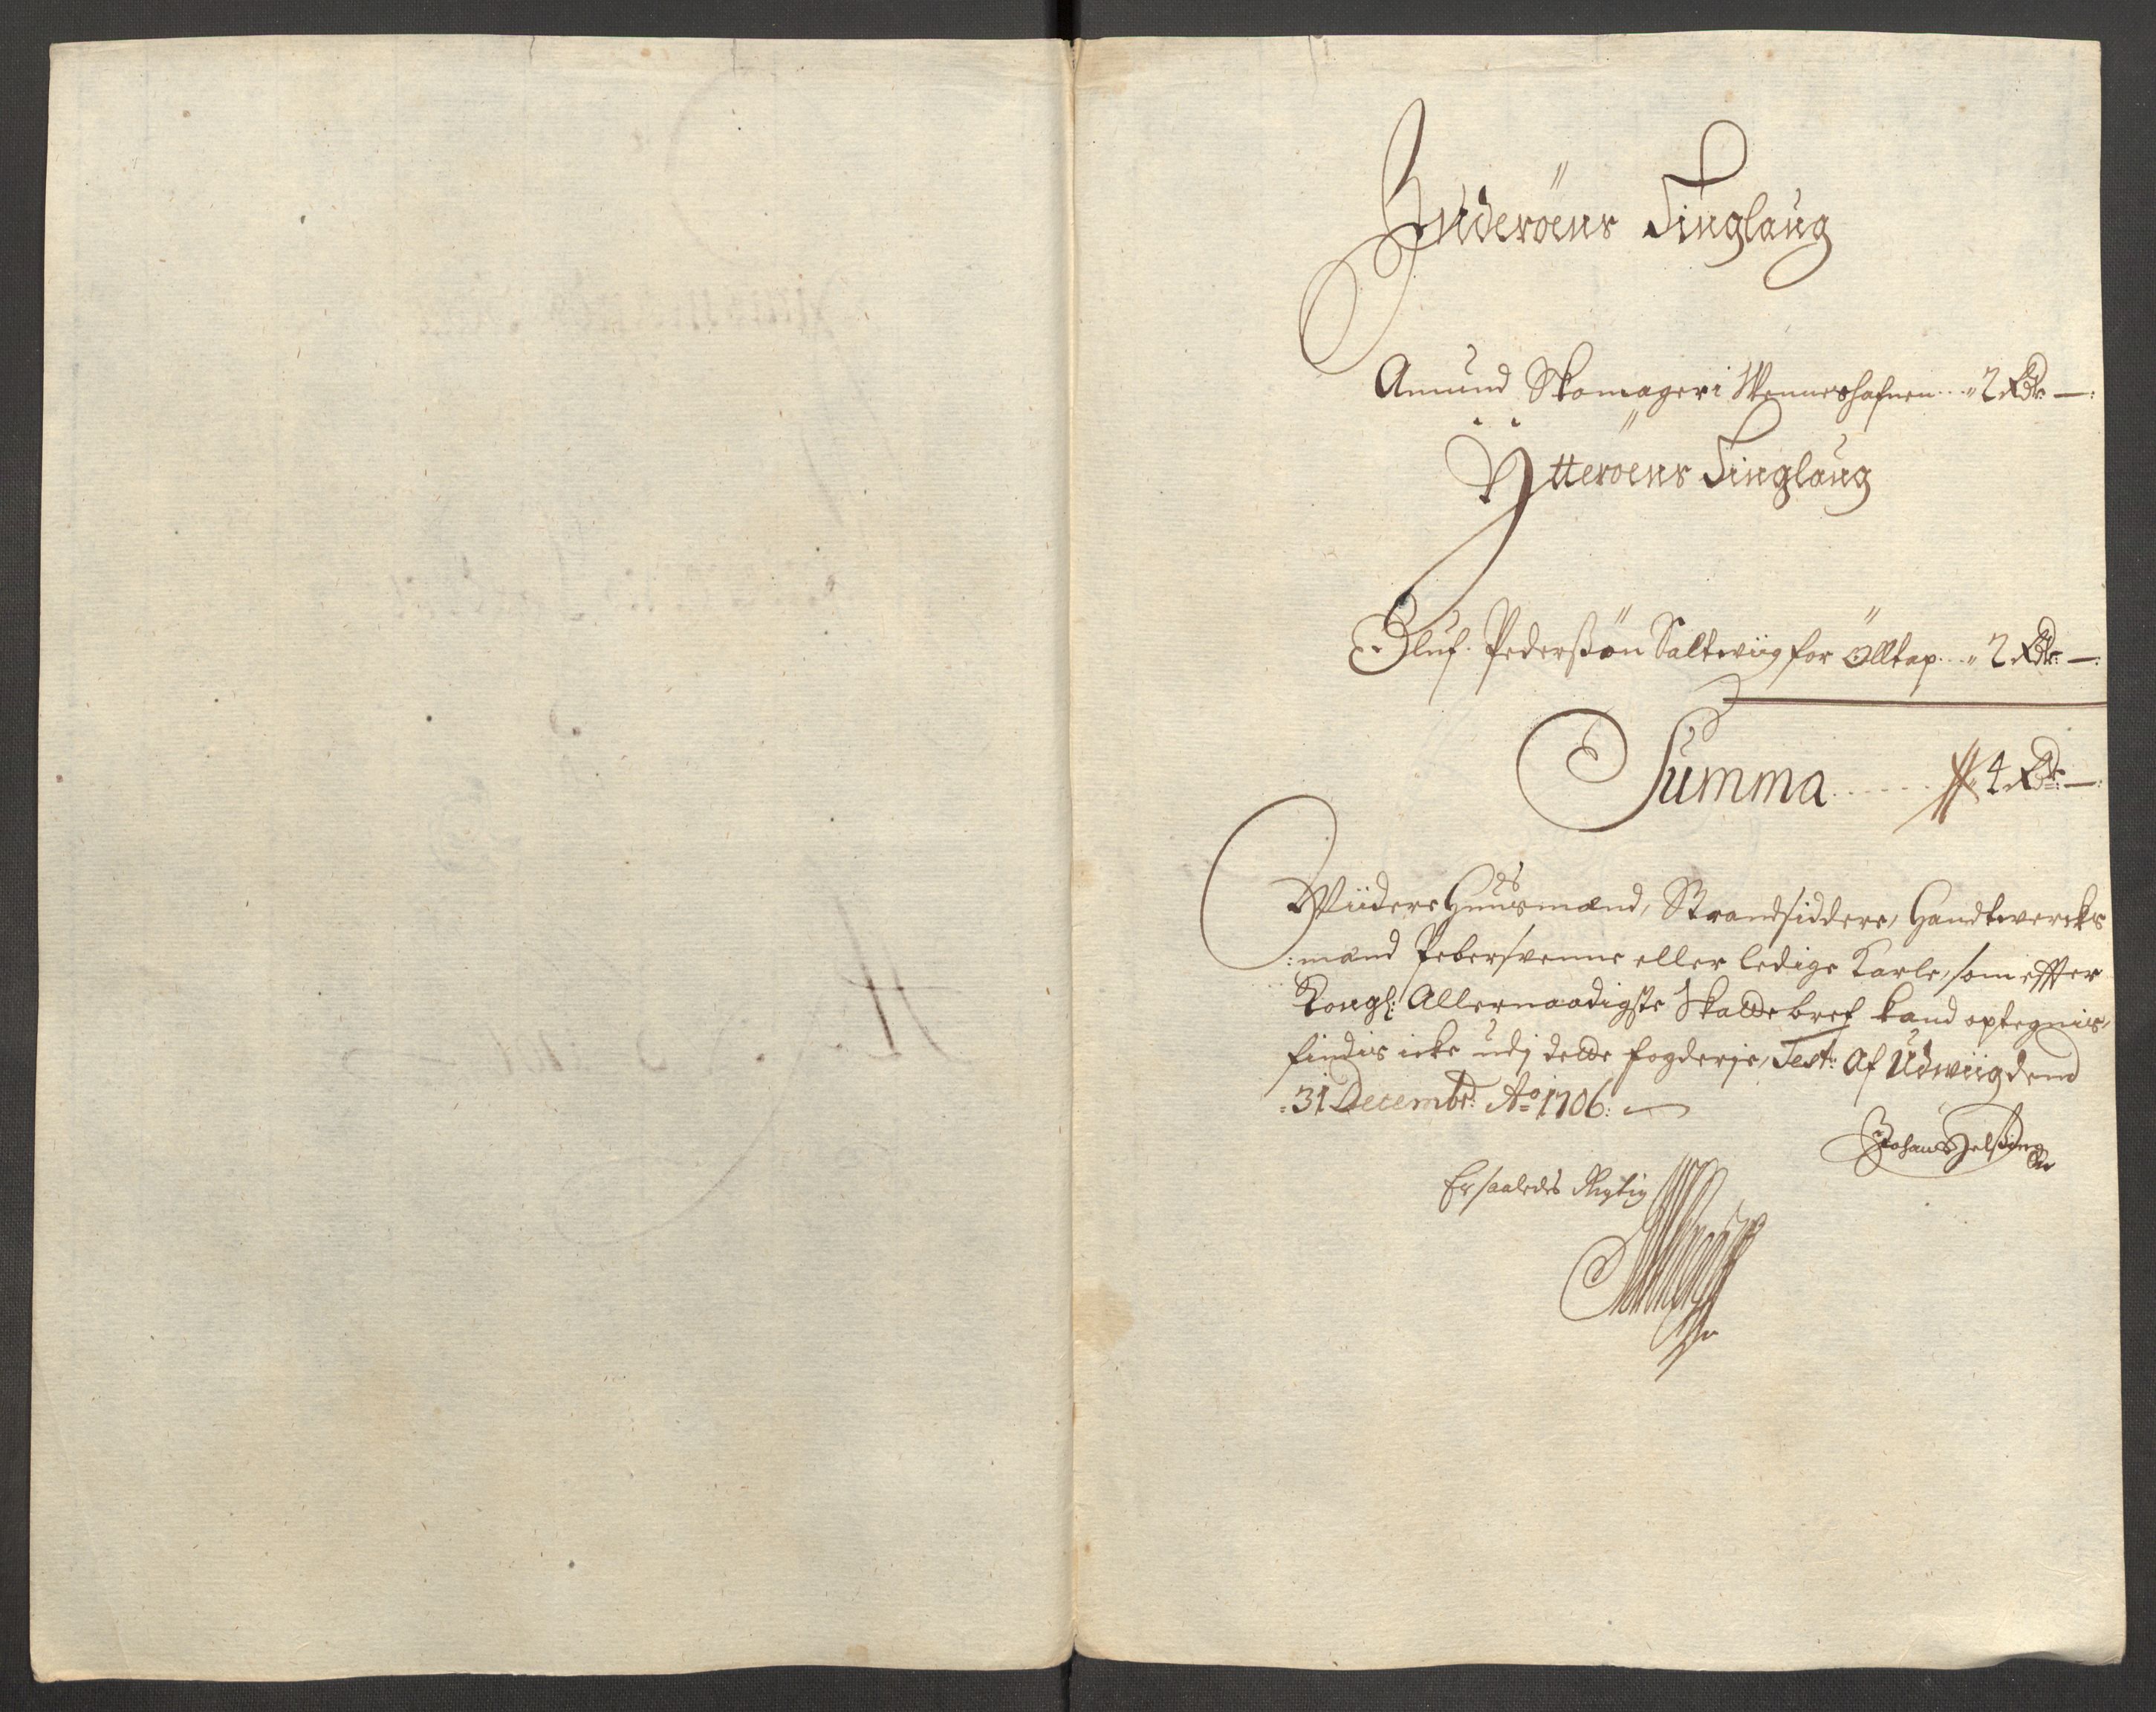 Inderöens Tinglaug
Amund Skomager i Wenneshafnen .. „ 2 Rdr —:
Ytteröens Tinglaug
Oluf Pederssön Saltwiig for Ölltap .. „ 2 Rdr: —:
Summa ...... 4 Rdr: —:
Wiidere Huusmænd, Strandsiddere, Handtwercks
:mænd Pebersvenne eller ledige Karle, som effter
Kongl: Allernaadigste Skatte bref kand optegnis,
findis icke udj dette fogderje, Test: Af Udwiig dend
:31 Decembr: Ao 1706:
Er saaledes Rigtig